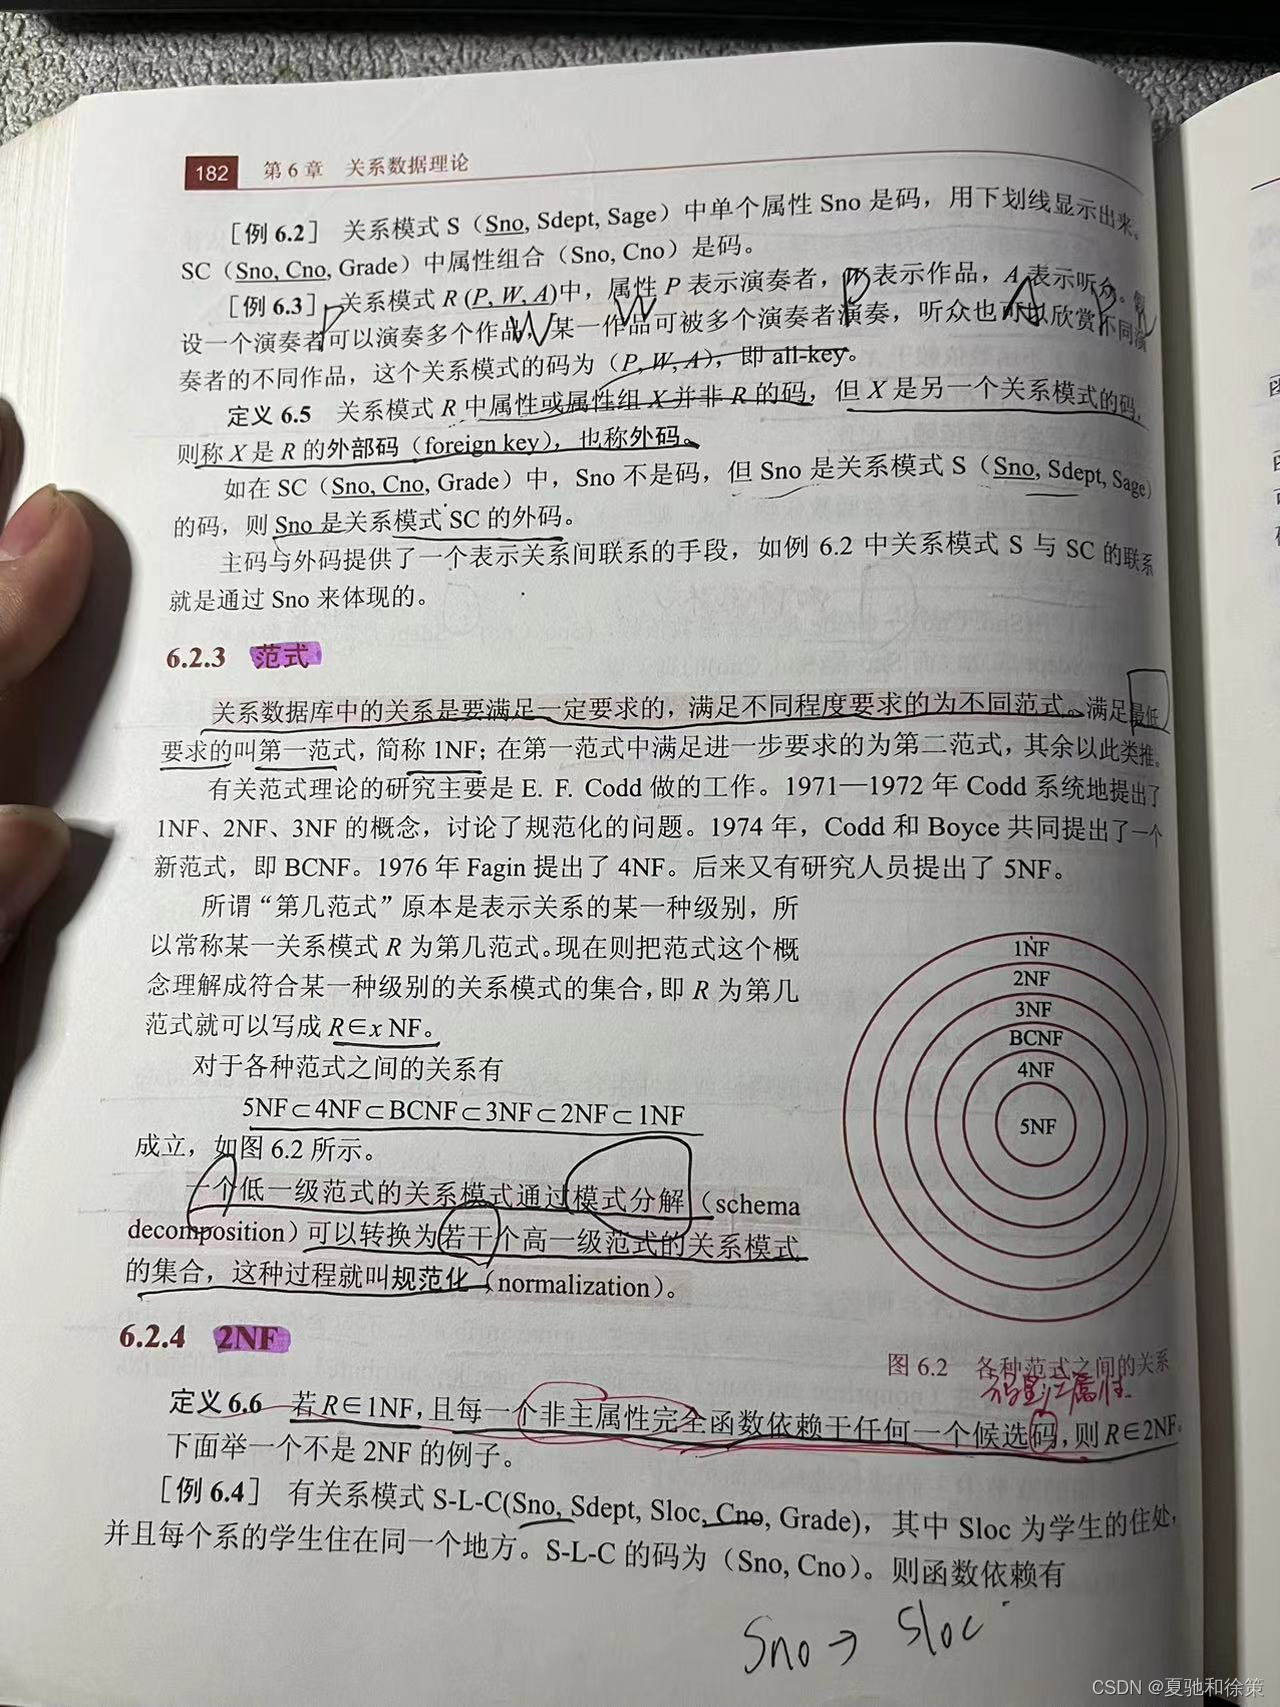 182 第6章 关系数据理论
[例 6.2] 关系模式 S（Sno, Sdept, Sage）中单个属性 Sno 是码，用下划线显示出来。
SC（Sno, Cno, Grade）中属性组合（Sno, Cno）是码。
[例 6.3] 关系模式 R (P, W, A)中，属性 P 表示演奏者，W 表示作品，A 表示听众。假
设一个演奏者可以演奏多个作品，某一作品可被多个演奏者演奏，听众也可以欣赏不同演
奏者的不同作品，这个关系模式的码为（P, W, A），即 all-key。
定义 6.5 关系模式 R 中属性或属性组 X 并非 R 的码，但 X 是另一个关系模式的码，
则称 X 是 R 的外部码（foreign key），也称外码。
如在 SC（Sno, Cno, Grade）中，Sno 不是码，但 Sno 是关系模式 S（Sno, Sdept, Sage）
的码，则 Sno 是关系模式 SC 的外码。
主码与外码提供了一个表示关系间联系的手段，如例 6.2 中关系模式 S 与 SC 的联系
就是通过 Sno 来体现的。
6.2.3 范式
关系数据库中的关系是要满足一定要求的，满足不同程度要求的为不同范式。满足最低
要求的叫第一范式，简称 1NF；在第一范式中满足进一步要求的为第二范式，其余以此类推。
有关范式理论的研究主要是 E. F. Codd 做的工作。1971—1972 年 Codd 系统地提出了
1NF、2NF、3NF 的概念，讨论了规范化的问题。1974 年，Codd 和 Boyce 共同提出了一个
新范式，即 BCNF。1976 年 Fagin 提出了 4NF。后来又有研究人员提出了 5NF。
所谓“第几范式”原本是表示关系的某一种级别，所
以常称某一关系模式 R 为第几范式。现在则把范式这个概
念理解成符合某一种级别的关系模式的集合，即 R 为第几
范式就可以写成 R∈x NF。
对于各种范式之间的关系有
5NF⊂4NF⊂BCNF⊂3NF⊂2NF⊂1NF
成立，如图 6.2 所示。
一个低一级范式的关系模式通过模式分解（schema
decomposition）可以转换为若干个高一级范式的关系模式
的集合，这种过程就叫规范化（normalization）。
1NF
2NF
3NF
BCNF
4NF
5NF
图 6.2 各种范式之间的关系
6.2.4 2NF
定义 6.6 若 R∈1NF，且每一个非主属性完全函数依赖于任何一个候选码，则 R∈2NF。
下面举一个不是 2NF 的例子。
[例 6.4] 有关系模式 S-L-C(Sno, Sdept, Sloc, Cno, Grade)，其中 Sloc 为学生的住处，
并且每个系的学生住在同一个地方。S-L-C 的码为（Sno, Cno）。则函数依赖有
Sno → Sloc
CSDN @夏驰和徐策